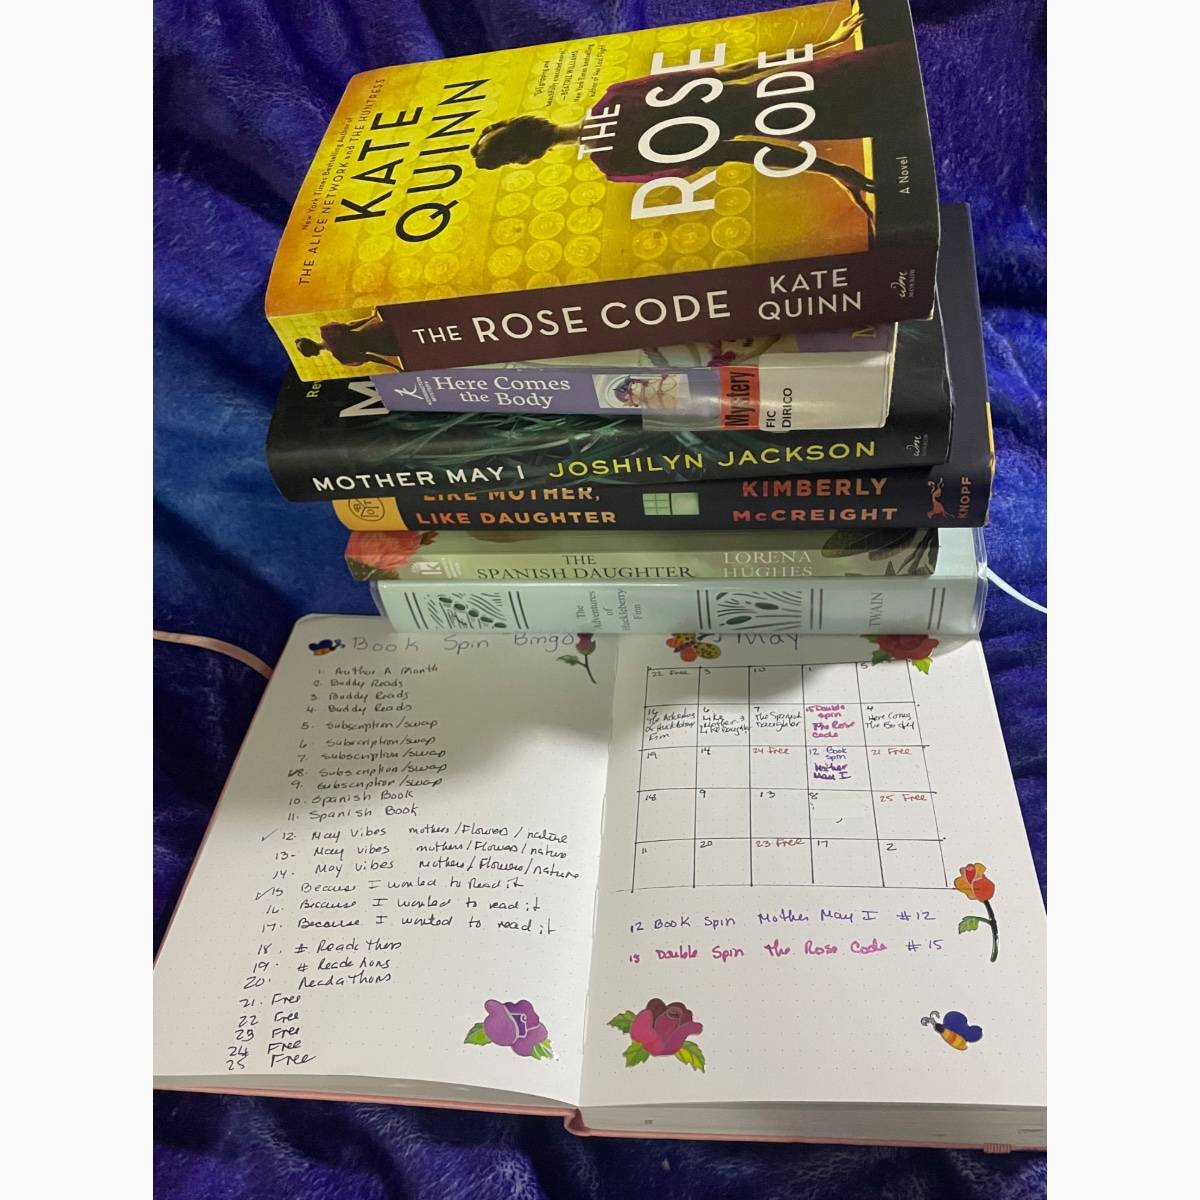 New York Times Bestselling Author of
THE ALICE NETWORK and THE HUNTRESS
KATE
QUINN
"[A] gripping and
beautifully executed novel."
—BEATRIZ WILLIAMS,
New York Times bestselling
author of Her Last Flight
THE
ROSE
CODE
A Novel
THE ROSE CODE
KATE
QUINN
wm
MORROW
Here Comes
the Body
Mystery
FIC
DIRICO
M
Re
M
MOTHER MAY I JOSHILYN JACKSON
wm
LIKE MOTHER,
LIKE DAUGHTER
KIMBERLY
McCREIGHT
KNOPF
THE
SPANISH DAUGHTER
LORENA
HUGHES
k
The
Adventures
of
Huckleberry
Finn
TWAIN
Book Spin Bingo
1. Author A Month
2. Buddy Reads
3 Buddy Reads
4. Buddy Reads
5. Subscription/swap
6. Subscription/swap
7. Subscription/swap
8. Subscription/swap
9. Subscription/swap
10. Spanish Book
11. Spanish Book
✓ 12. May Vibes mothers/Flowers/nature
13- May vibes mothers/Flowers/nature
14. May vibes mothers/Flowers/nature
✓15 Because I wanted to Read it
16. Because I wanted to read it
17. Because I wanted to read it
18. # Readathons
19. # Readathons
20. Readathons
21. Free
22 Free
23 Free
24 Free
25 Free
May
22 Free 3 10 1 5
16 The Adventures of Huckleberry Finn
6 Like Mother Like Daughter
7 The Spanish Daughter
15 Double spin The Rose Code
4 Here Comes The Body
19 14 24 Free
12 Book Spin Mother May I
21 Free
18 9 13 8 25 Free
11 20 23 Free 17 2
12 Book Spin Mother May I #12
15 Double Spin The Rose Code #15